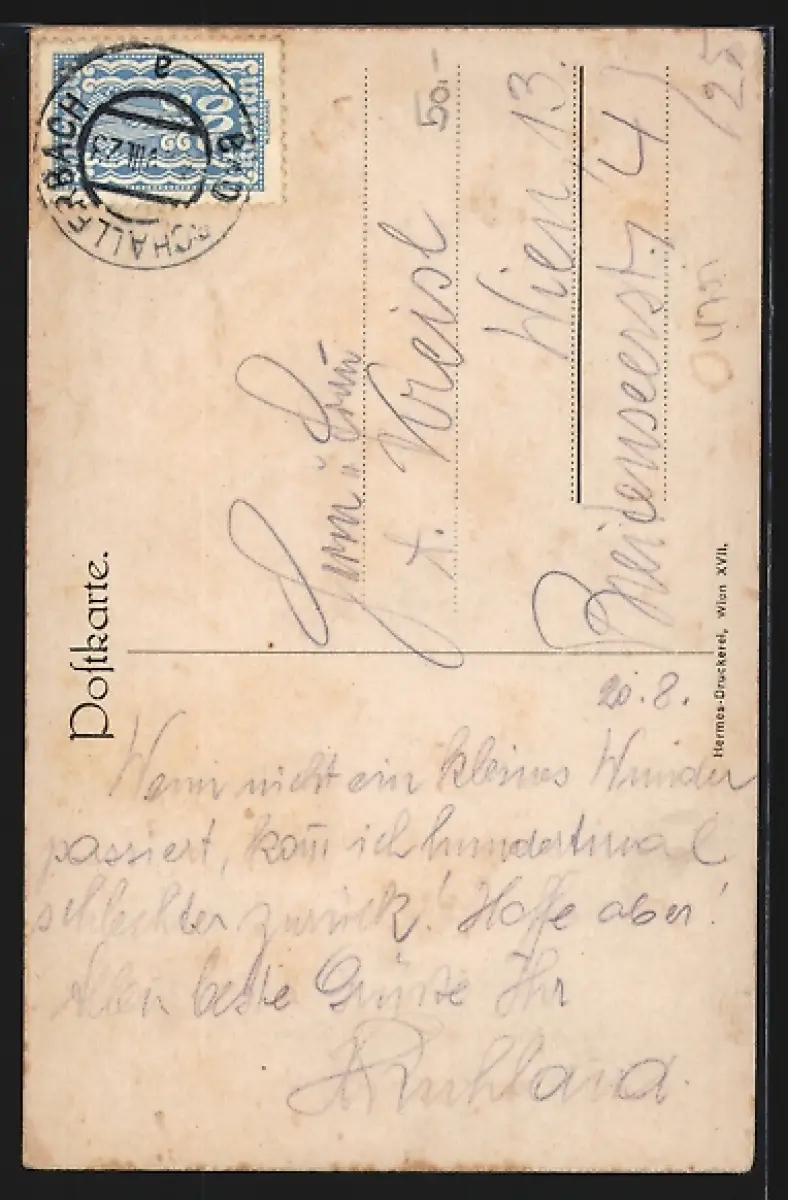 Postkarte.
BAD SCHALLERBACH
e
VIII.23
50.-
Herrn u Frau
Kreisl
Wien, 13.
Breitenseerst. 4/
/25
Hermes-Druckerei, Wien XVII.
20.8.
Wenn nicht ein kleines Wunder
passiert, kom̄ ich hundertmal
schlechter zurück! Hoffe aber!
Allen beste Grüsse Ihr
Ruhland.